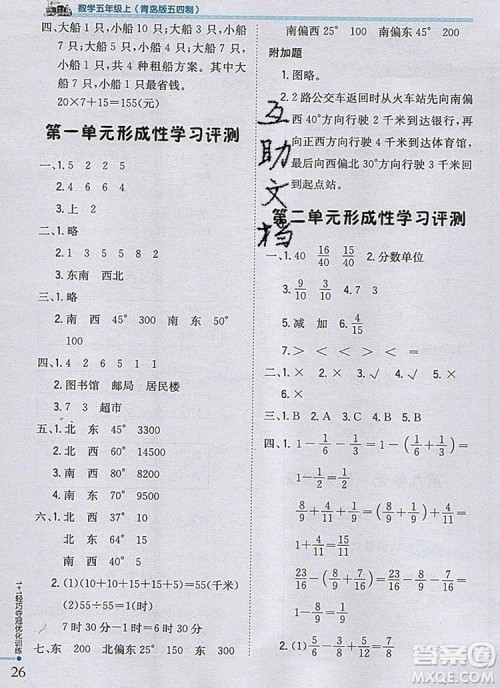 数学五年级上（青岛版五四制）
四、大船 1 只，小船 10 只；大船 5 只，
小船 4 只；大船 7 只，小船 1
只，共 4 种租船方案。大船 7
只，小船 1 只这种方案最
省钱；
20×7+15=155(元)
第一单元形成性学习评测
一、1. 5 2 2 5
2. 6 8 4
3. 上 2
二、1. 略
2. 略
3. 东南 西北
三、1. 略
2. 南 西 45° 300 南 东 50°
100
四、1. 4 2 6 5 1 1
2. 图书馆 邮局 居民楼
3. 7 3 超市
五、1. 北 东 45° 9300
2. 北 西 58° 9280
3. 南 西 45° 8000
4. 北 东 45° 11000
六、1. 北 西 37° 10 西
南 东 50° 10
2. (1)(10+10+15+20)=55(千米)
(2)55÷55=1(时)
七、东 200 北偏东 25° 150
1+1轻巧夺冠优化训练
26
南偏西 25° 100 南偏东 45° 200
附加题
1. 图略。
2. 2 路公交车返回时从火车站先向南偏
西 40° 方向行驶 2 千米到达银行，再
向正西方向行驶 4 千米到达医院，
最后向西偏北 30° 方向行驶 3 千米回
到起点站。
互助文档
第二单元形成性学习评测
一、1. 40 16/40 15/40 2. 分数单位
3. 9/10 9/14 4. 6/11 4/11
5. 减 加 6. 4/15
7. > < < < < <
二、1. × 2. √ 3. √ 4. ×
三、1. B 2. A 3. A 4. B 5. B
四、1. 1-1/6-1/3=1-(1/6+1/3)=
1-1/2=1/2
2. 1/6+5/8-1/3=19/24-1/3=11/24
3. 23/16-(7/16-1/9)=23/16-7/16+
1/9=1+1/9=10/9
4. 23/16-(7/16+1/9)=23/16-7/16-
1/9=1-1/9=8/9
答案圈
MXQE.COM